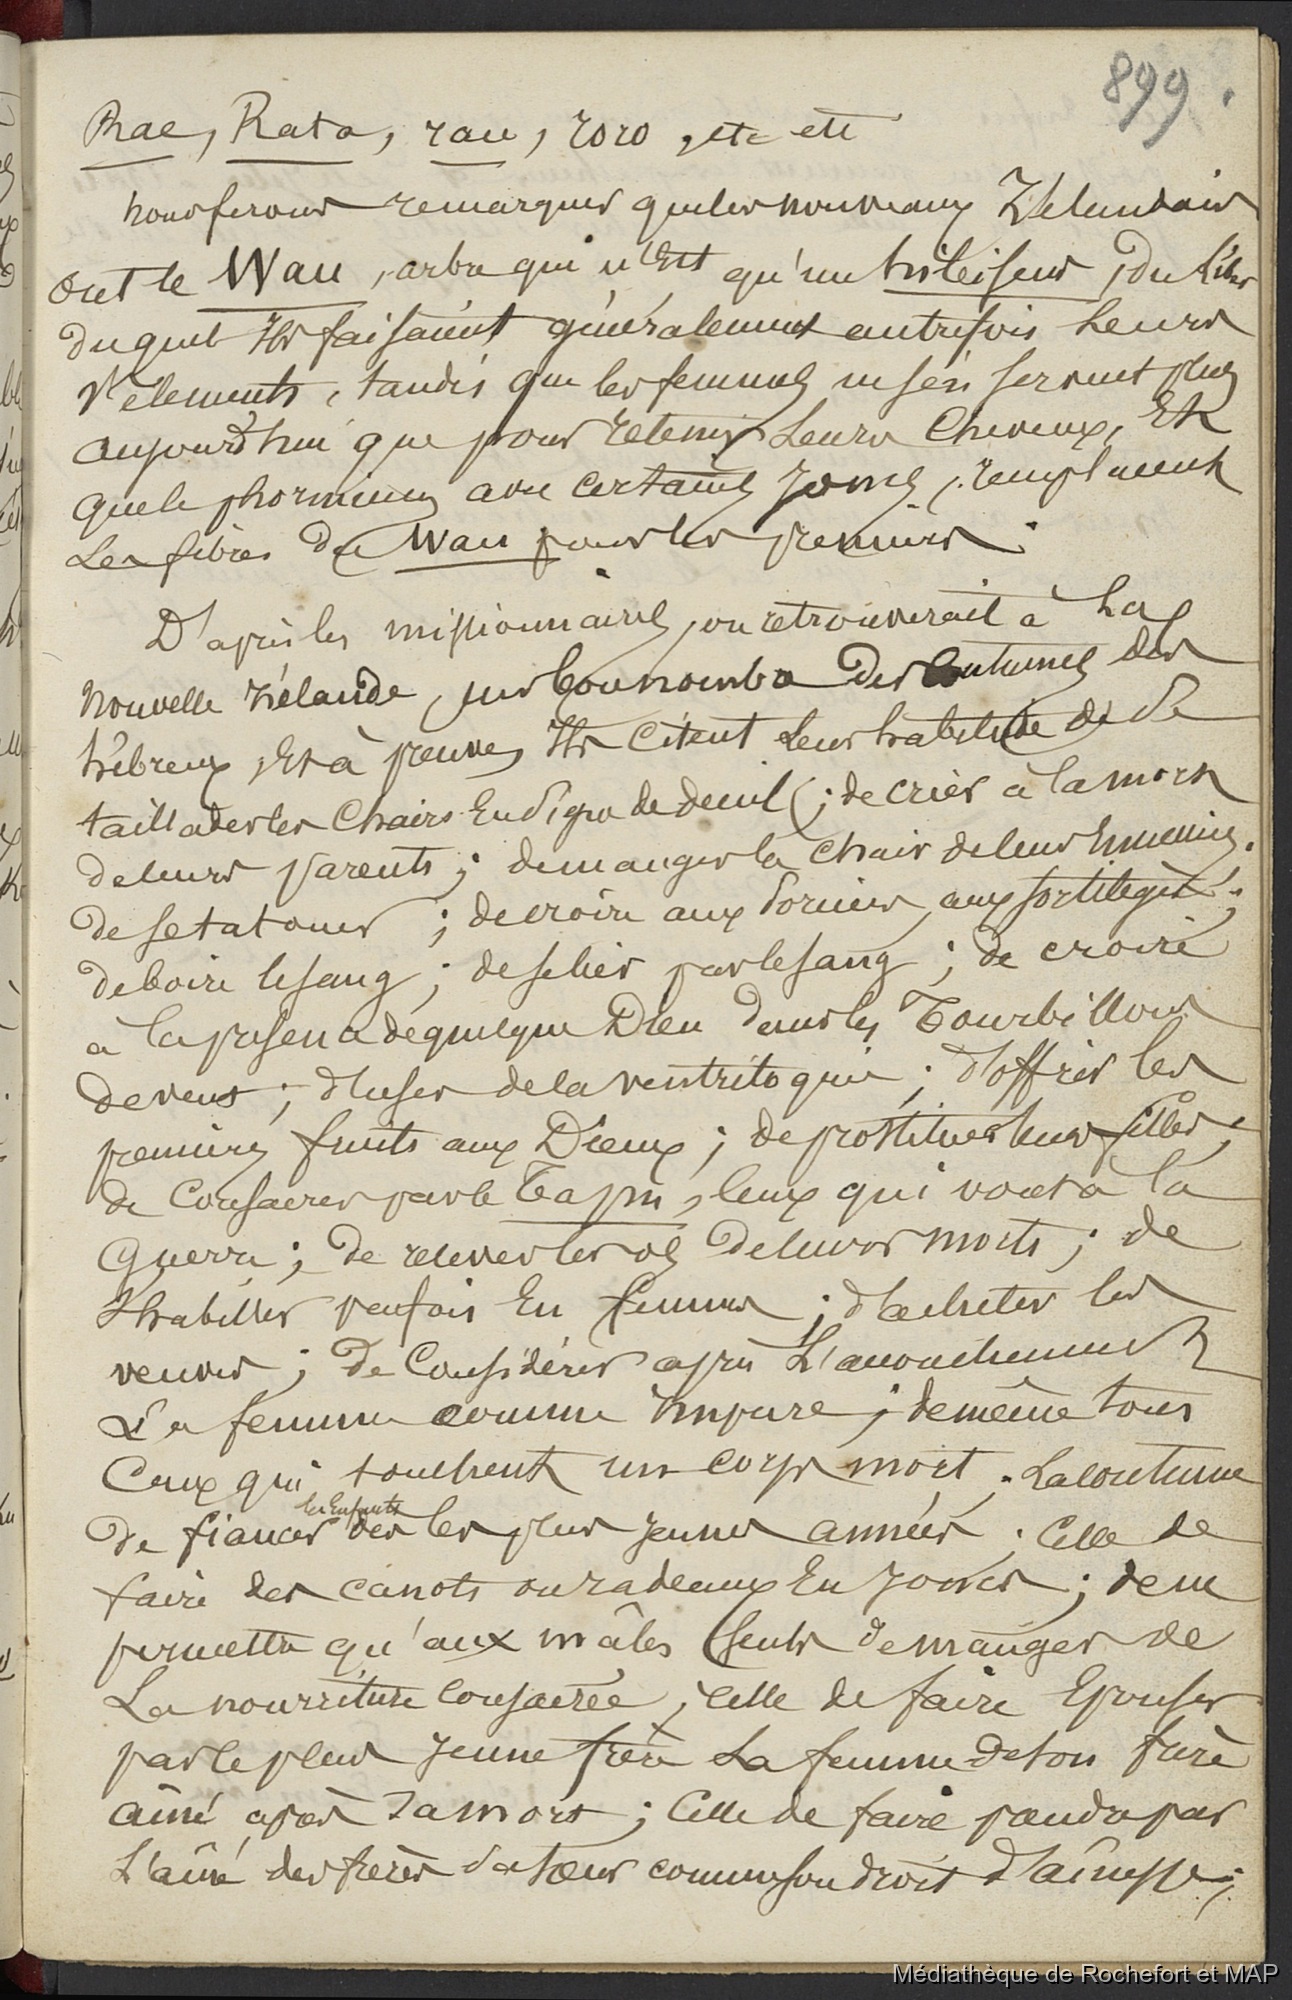 899.
Rae, Rata, rau, roro, etc etc
nous ferons remarquer que les nouveaux Zélandais
ont le Wau, arbre qui n'est qu'un , du liber
duquel Ils faisaient généralement autrefois Leurs
Vêtements, tandis que les femmes ne s'en servent plus
aujourd'hui que pour retenir Leurs Cheveux, Et
que le phormium avec certains joncs, remplacent
Les fibres du Wau pour les premiers.
D'après les missionnaires, on retrouverait à La
Nouvelle Zélande, un bon nombre des Coutumes des
hébreux, Et à preuve, Ils Citent Leur habitude de Se
taillader les Chairs En Signe de deuil; de crier à la mort
de leurs parents; de manger la Chair de leurs Ennemis.
de se tatouer; de croire aux Sorciers, aux sortilèges;
de boire le sang; de se lier par le sang; de croire
à la présence de quelque Dieu dans les Tourbillons
de vent; d'user de la ventriloquie; d'offrir les
premiers fruits aux Dieux; de prostituer leurs filles;
de Consacrer par le Tapu, Ceux qui vont à la
Guerre; de relever les os de leurs morts; de
S'habiller parfois En femmes; d'acheter les
veuves; de Considérer après L'accouchement
La femme comme impure; de même tous
Ceux qui touchent un corps mort. La coutume
de fiancer les Enfants dès les plus jeunes années. Celle de
faire des canots ou radeaux En joncs; de ne
permettre qu'aux mâles seuls de manger de
La nourriture Consacrée; celle de faire Epouser
par le plus jeune frère La femme de son frère
aîné après sa mort; Celle de faire prendre par
L'aîné des frères sa soeur comme son droit d'aînesse;
Médiathèque de Rochefort et MAP